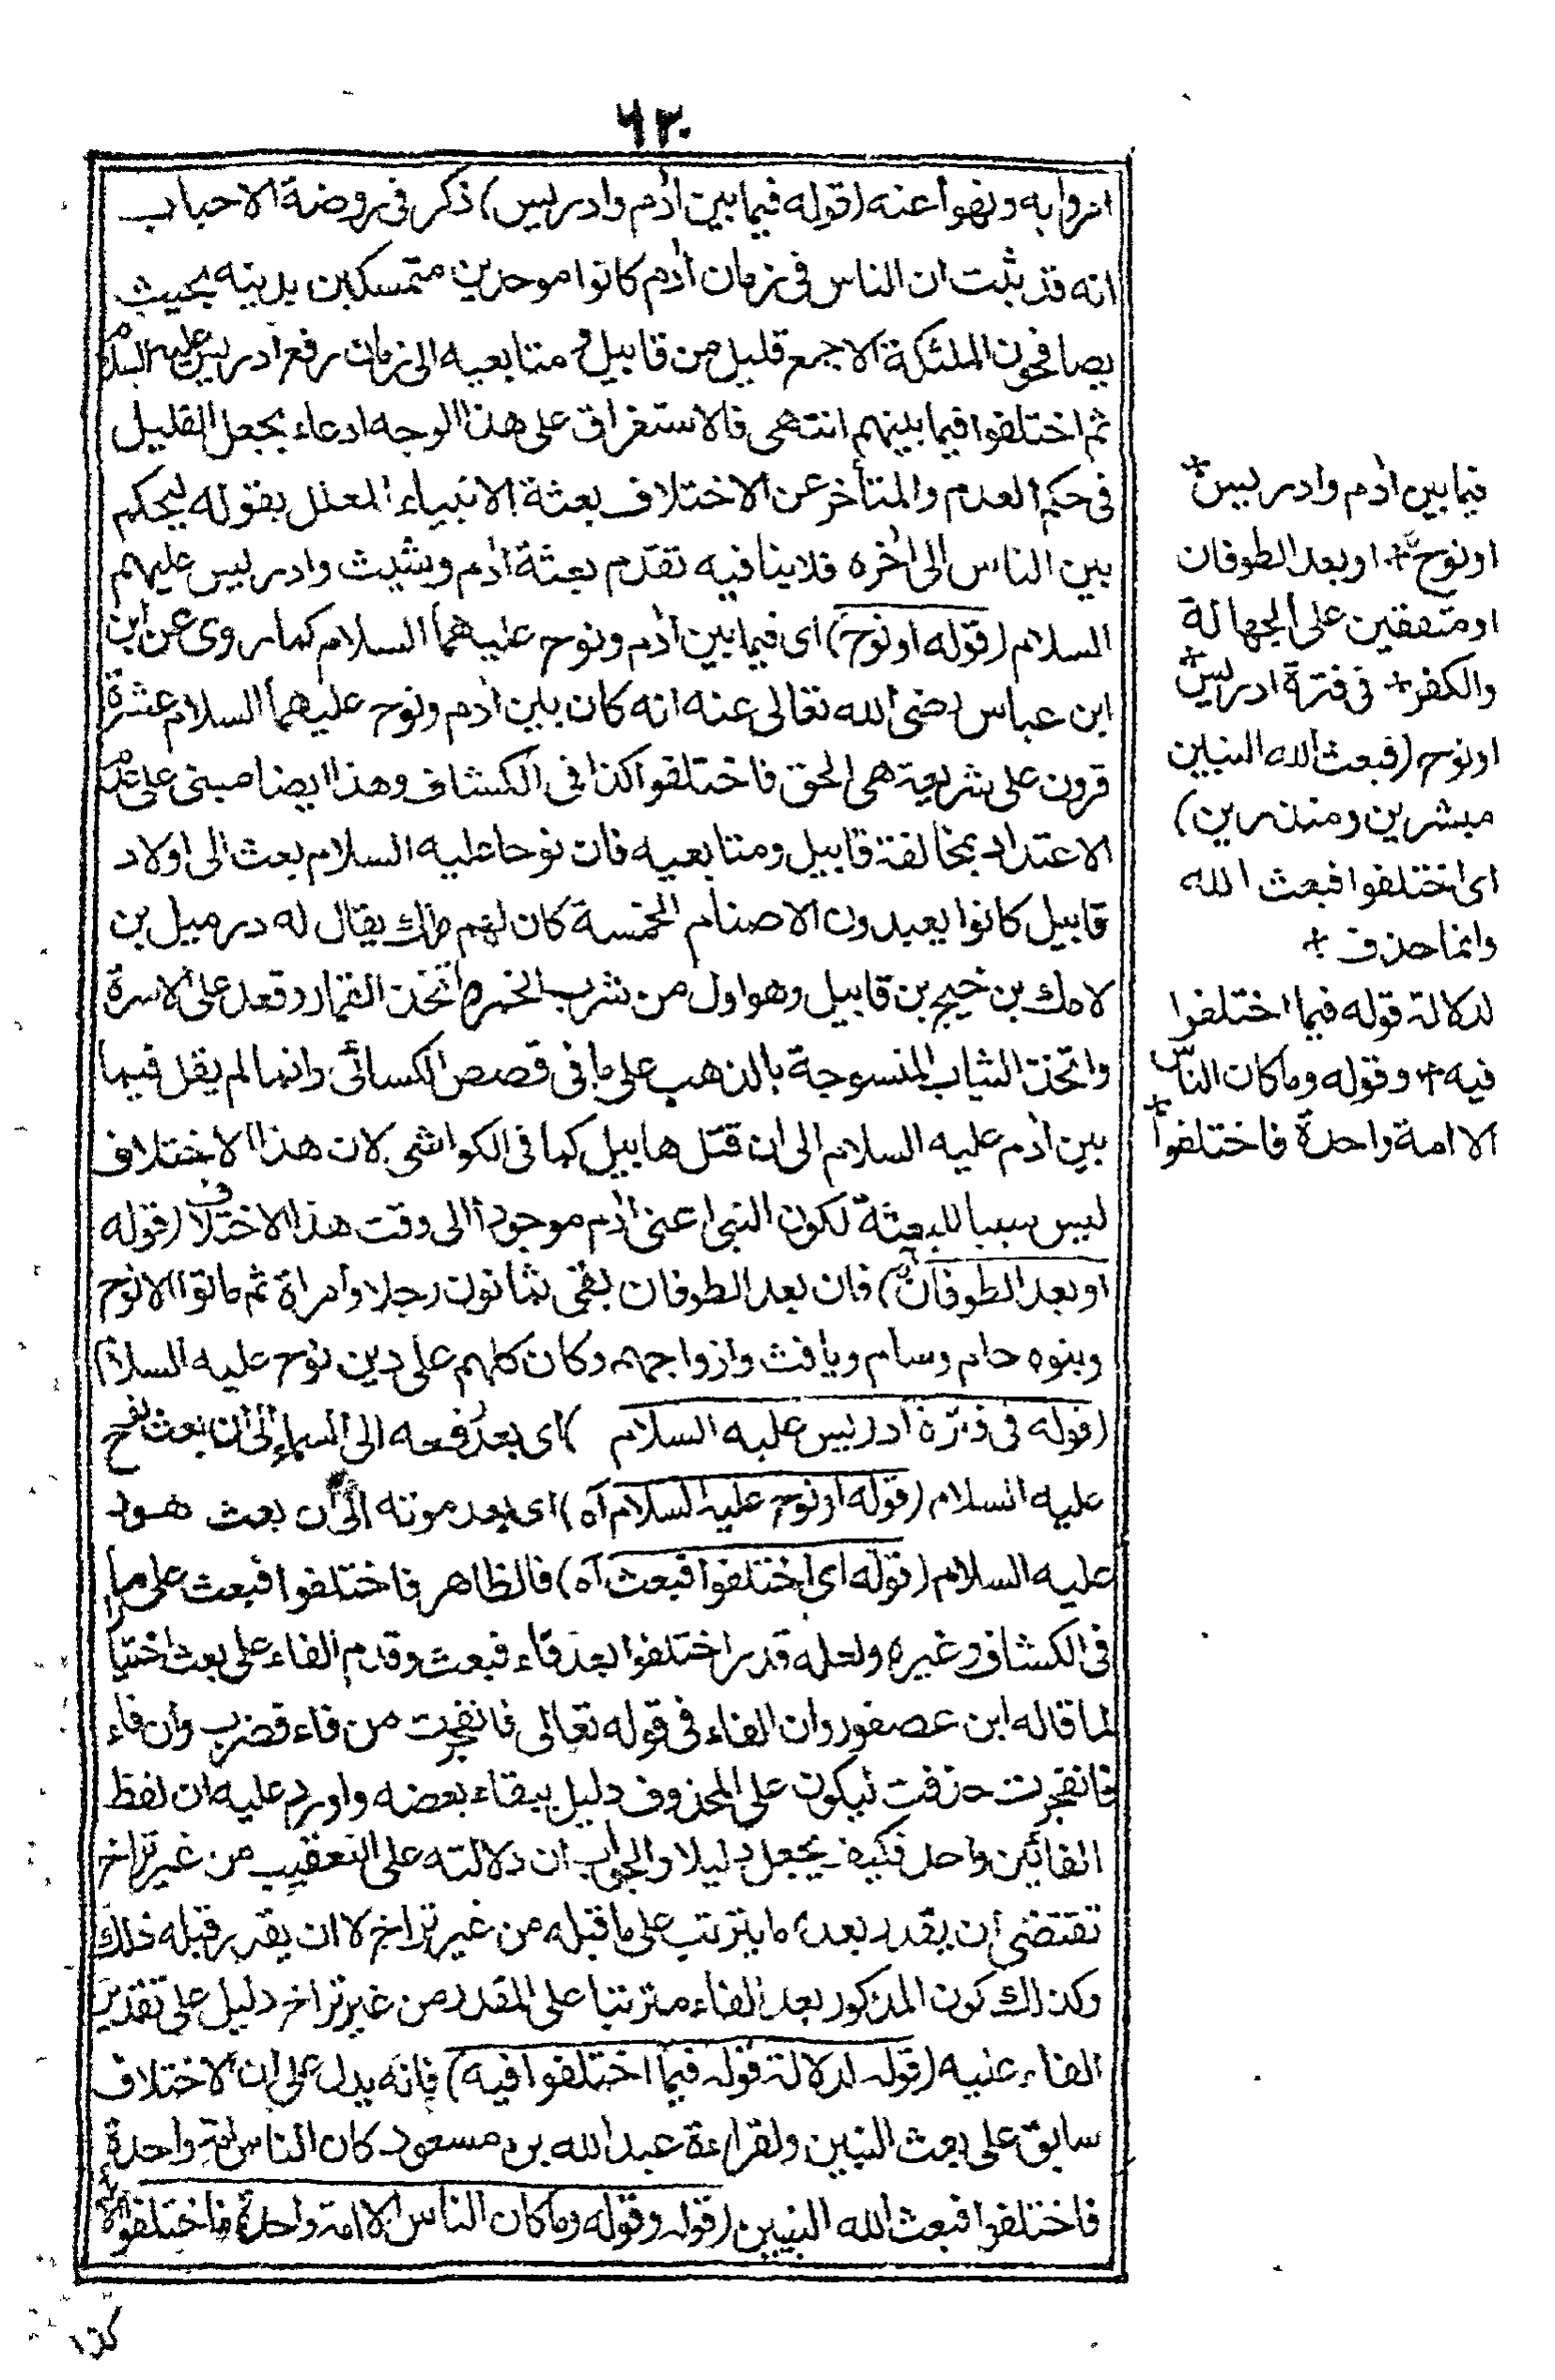 ٦٣٠
امروا به ونهوا عنه (قوله فيما بين اٰدم وادريس) ذكر فى روضة الاحباب
انه قد ثبت ان الناس فى زمان اٰدم كانوا موحدين متمسكين بدينه بحيث
يصافحون الملئكة الا جمع قليل من قابيل و متابعيه الى زمان رفع ادريس عليه السلام
ثم اختلفوا فيما بينهم انتهى فالاستغراق على هذا الوجه ادعاء بجعل القليل
فى حكم العدم والمتأخر عن الاختلاف بعثة الانبياء المعلل بقوله ليحكم
بين الناس الى اٰخره فلا ينافيه تقدم بعثة اٰدم وشيث وادريس عليهم
السلام (قوله او نوح) اى فيما بين اٰدم ونوح عليهما السلام كما روى عن ابن
ابن عباس رضى الله تعالى عنه انه كان بين اٰدم ونوح عليهما السلام عشرة
قرون على شريعة هى الحق فاختلفوا كذا فى الكشاف وهذا ايضا مبنى على عدم
الاعتداد بمخالفة قابيل ومتابعيه فان نوحا عليه السلام بعث الى اولاد
قابيل كانوا يعبدون الاصنام الخمسة كان لهم ملك يقال له درميل بن
لامك بن خيج بن قابيل وهو اول من شرب الخمر واتخذ القمار وقعد على الاسرة
واتخذ الثياب المنسوجة بالذهب على ما فى قصص الكسائى وانما لم يقل فيما
بين اٰدم عليه السلام الى ان قتل هابيل كما فى الكواشى لان هذا الاختلاف
ليس سببا للبعثة لكون النبى اعنى اٰدم موجودا الى وقت هذا الاختلاف (قوله
او بعد الطوفان اه) فان بعد الطوفان بقى ثمانون رجلا وامراة ثم ماتوا الا نوح
وبنوه حام وسام ويافث وازواجهم وكان كلهم على دين نوح عليه السلام
(قوله فى فترة ادريس عليه السلام ) اى بعد رفعه الى السماء الى ان بعث نوح
عليه السلام (قوله او نوح عليه السلام اٰه) اى بعد موته الى ان بعث هود
عليه السلام (قوله اى اختلفوا فبعث اٰه) فالظاهر فاختلفوا فبعث على ما
فى الكشاف وغيره ولعله قدر اختلفوا بعد فاء فبعث وقدم الفاء على بعث اختيارا
لما قاله ابن عصفور وان الفاء فى قوله تعالى فانفجرت من فاء فضرب وان فاء
فانفجرت حذفت ليكون على المحذوف دليل ببقاء بعضه واورد عليه ان لفظ
الفائين واحد فكيف يجعل دليلا والجواب ان دلالته على التعقيب من غير تراخ
تقتضى ان يقدر بعده ما يترتب على ما قبله من غير تراخ لا ان يقدر قبله ذلك
وكذلك كون المذكور بعد الفاء مترتبا على المقدر من غير تراخ دليل على تقدير
الفاء عنيه (قوله لدلالة قوله فيما اختلفوا فيه) فانه يدل على ان الاختلاف
سابق على بعث النبيين ولقراءة عبد الله بن مسعود كان الناس امة واحدة
فاختلفوا فبعث الله النبيين (قوله وقوله وما كان الناس الا امة واحدة فاختلفوا
فيما بين اٰدم وادريس +
او نوح + او بعد الطوفان
او متفقين على الجهالة
والكفر + فى فترة ادريس +
او نوح (فبعث الله النبيين
مبشرين ومنذرين)
اى اختلفوا فبعث الله
وانما حذف +
لدلالة قوله فيما اختلفوا
فيه + وقوله وما كان الناس
الا امة واحدة فاختلفوا +